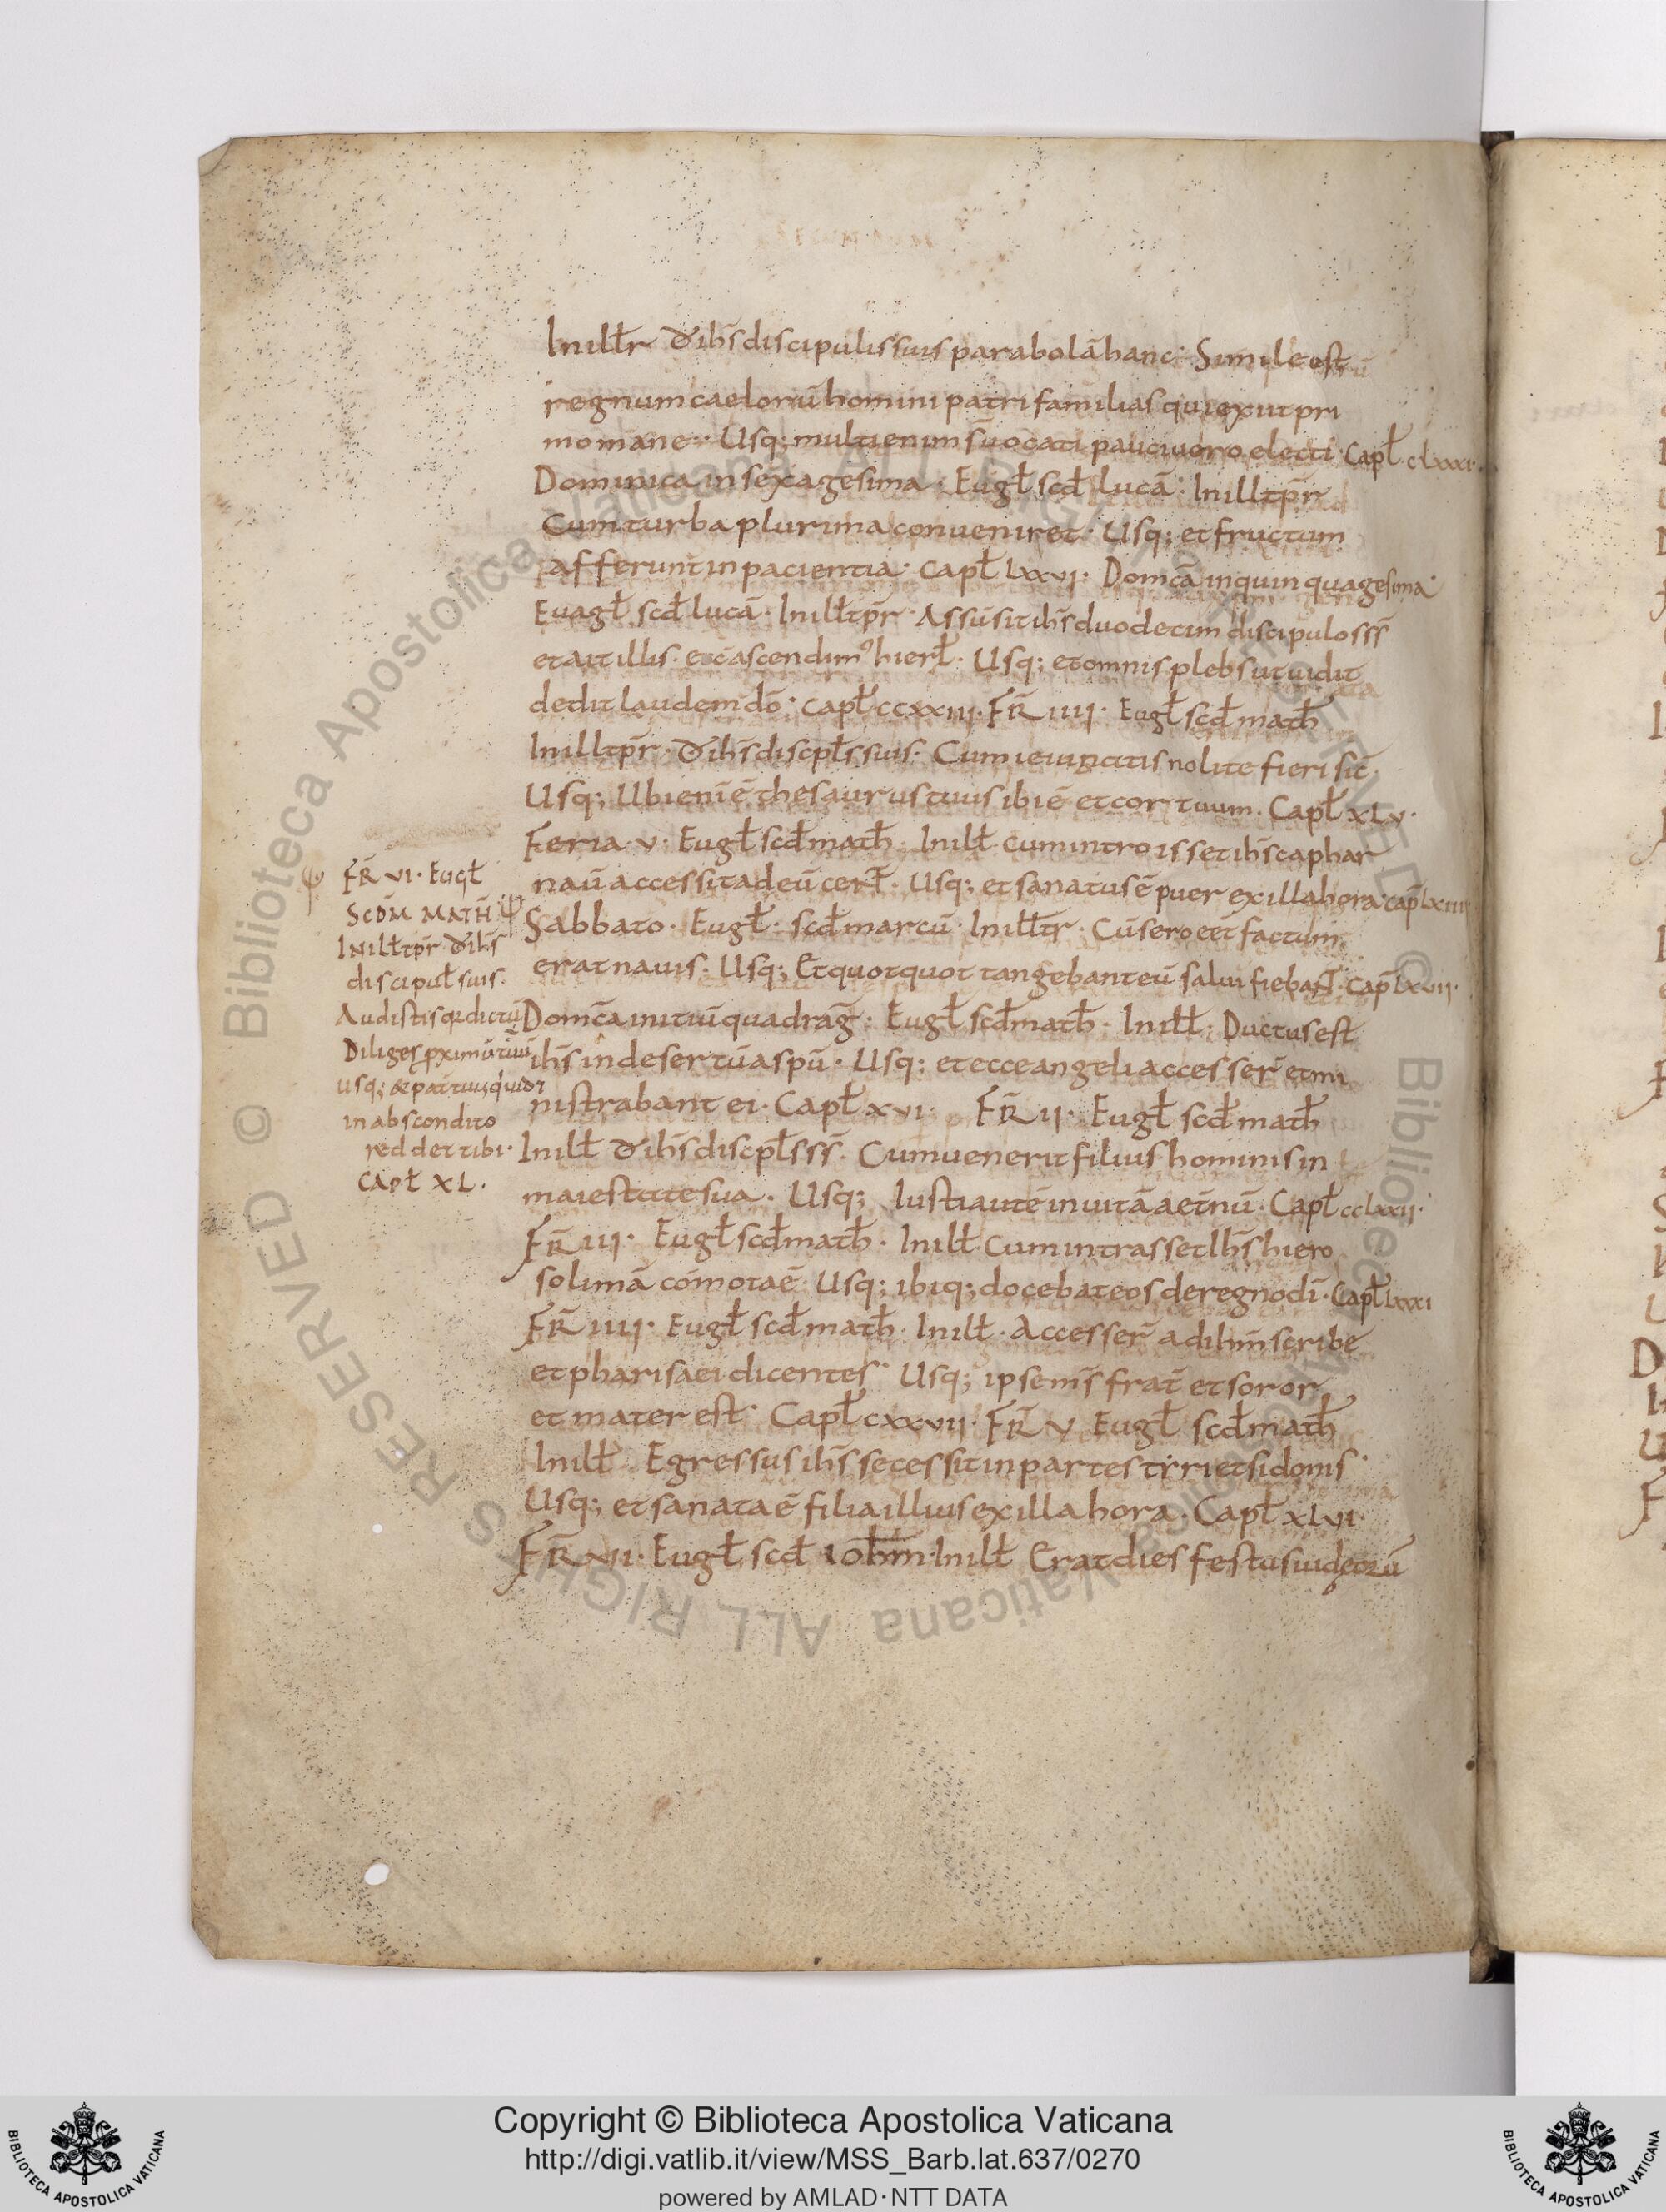 Inill̄r d̄ ih̄s discipulis suis parabolā hanc· Simile est
regnum caelorū homini patri familias qui exiit pri
mo mane· Usq; multi enim s̄ uocati pauci uero electi· Capl̄ clxxxi·
Dominica in sexagesima· Eugl̄ scd̄ lucā· Inill tp̄r
Cum turba plurima conueniret· Usq; et fructum
afferunt in pacientia· Capl̄ lxxvi· Domc̄a in quinquagesima·
Euagl̄ scd̄ lucā· Inill̄ tp̄r· Assūsit ih̄s duodecim discipulos ss̄
et ait illis· ecc̄ ascendim᾽ hierl̄· Usq; et omnis plebs ut uidit
dedit laudem dō· capl̄ ccxxiii· FR̄ iiii· Eugl̄ scd̄ math̄
Inill tp̄r· d̄ ih̄s discpl̄s suis· Cum ieiunatis nolite fieri sic̄·
Usq; Ubi eni ē thesaurus tuus ibi ē et cor tuum· Capl̄ xlv·
Feria v· Eugl̄ scd̄ math̄· Inill̄ cum introisset ih̄s caphar
naū accessit ad eū cent̄· Usq; et sanatus ē puer ex illa hora· cap̄ lxiiii
Sabbato· Eugl̄· scd̄ marcū· Inill̄ tr· Cū sero eēt factum
erat nauis· Usq; Et quotquot tangebant eū salui fiebant· cap̄ lxvii·
Domc̄a initiū quadraḡ· Eugl̄ scd̄ math̄· Inill̄· Ductus est
ih̄s in desertū a spū· Usq; et ecce angeli accesser̄ et mi
nistrabant ei· Capl̄ xvi· FR̄ ii· Eugl̄ scd̄ math̄
Inill̄ d̄ ih̄s discpl̄s ss̄· Cum uenerit filius hominis in
maiestate sua· Usq; Iusti autē in uitā aet̄nū· Capl̄ cclxxii·
FR̄ iii· Eugl̄ scd̄ math̄· Inill̄ cum intrasset Ih̄s hiero
solimā cōmota ē· Usq; ibiq; docebat eos de regno dī· Capl̄ lxxxi
FR̄ iiii· Eugl̄ scd̄ math̄· Inill̄· Accesser̄ ad ihm̄ scribe
et pharisaei dicentes· Usq; ipse m̄s frat̄ et soror
et mater est· Capl̄ cxxvii· FR̄ v Eugl̄ scd̄ math̄
Inill̄ Egressus ih̄s secessit in partes tyri et sidonis·
Usq; et sanata ē filia illius ex illa hora· Capl̄ xlvi·
FR̄ vii· Eugl̄ scd̄ Iohm̄ Inill̄ Erat dies festus iudęorū
FR̄ vi· Eugl̄
SCDM̄ MATH̄
Inill̄ tp̄r d̄ ih̄s
discipul̄ suis·
Audistis qa dictū
Diliges pximū tuū
usq; & pat̄ tuus qui uid&
in abscondito
reddet tibi·
Capl̄ XL·
Copyright © Biblioteca Apostolica Vaticana
http://digi.vatlib.it/view/MSS_Barb.lat.637/0270
powered by AMLAD·NTT DATA
BIBLIOTECA APOSTOLICA VATICANA
BIBLIOTECA APOSTOLICA VATICANA